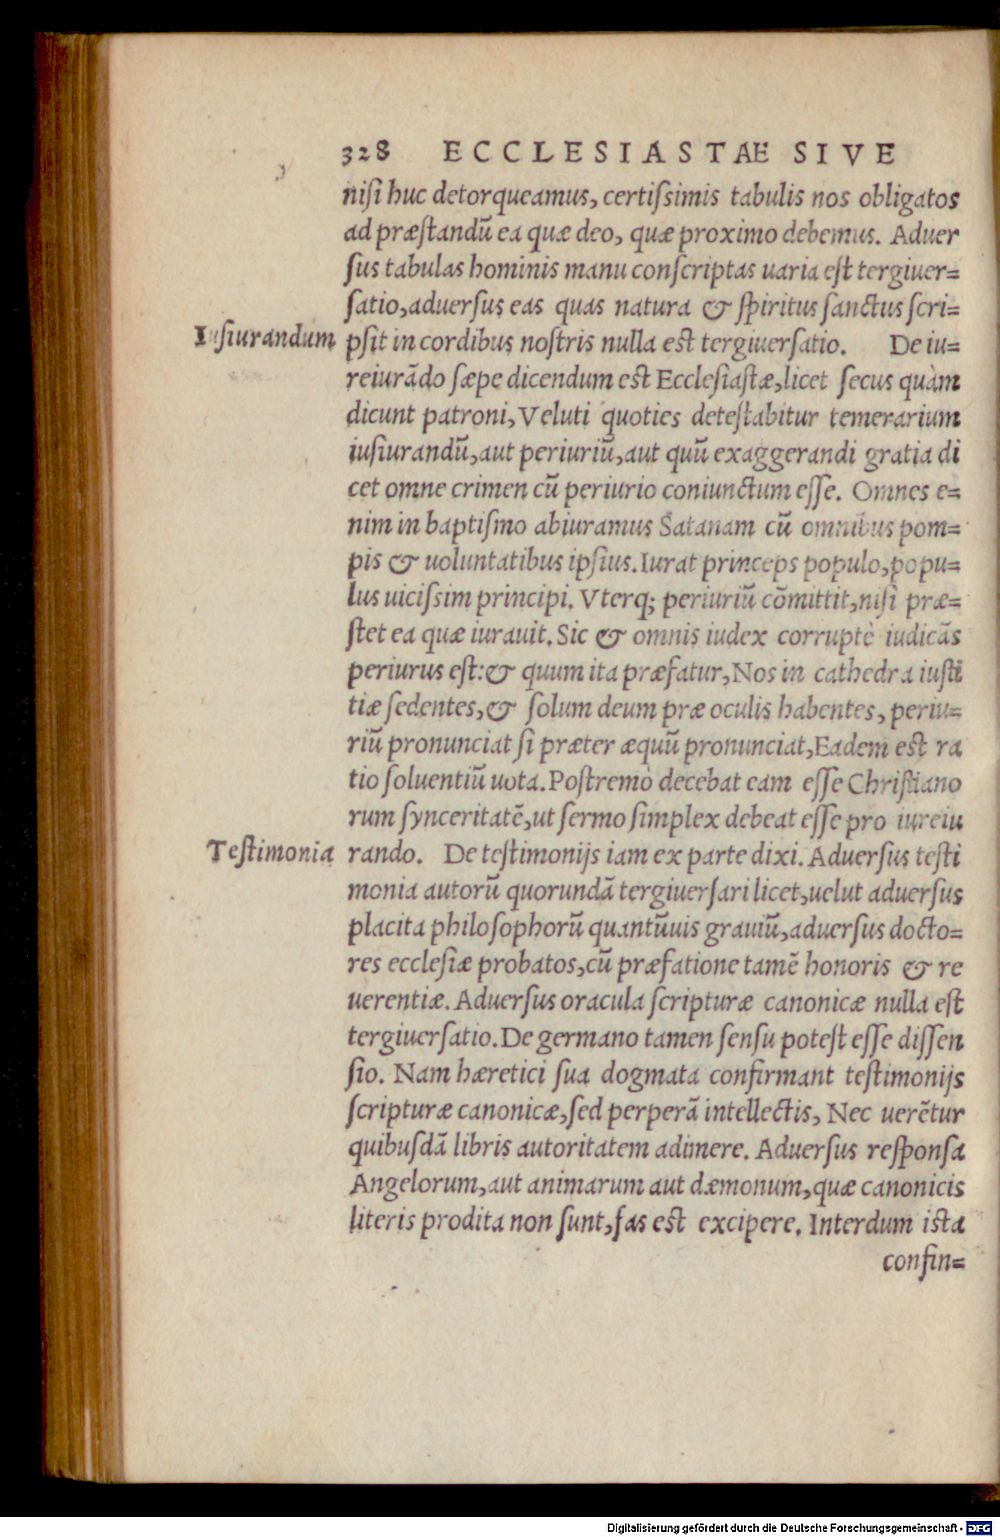 328 ECCLESIASTAE SIVE
nisi huc detorqueamus, certissimis tabulis nos obligatos
ad præstandū ea quæ deo, quæ proximo debemus. Aduer
sus tabulas hominis manu conscriptas uaria est tergiuer=
satio, aduersus eas quas natura & spiritus sanctus scri=
Iusiurandum
psit in cordibus nostris nulla est tergiuersatio. De iu=
reiurādo sæpe dicendum est Ecclesiastæ, licet secus quàm
dicunt patroni, Veluti quoties detestabitur temerarium
iusiurandū, aut periuriū, aut quū exaggerandi gratia di
cet omne crimen cū periurio coniunctum esse. Omnes e=
nim in baptismo abiuramus Satanam cū omnibus pom=
pis & uoluntatibus ipsius. Iurat princeps populo, popu=
lus uicissim principi. Vterq; periuriū cōmittit, nisi præ=
stet ea quæ iurauit. Sic & omnis iudex corruptè iudicās
periurus est: & quum ita præfatur, Nos in cathedra iusti
tiæ sedentes, & solum deum præ oculis habentes, periu=
riū pronunciat si præter æquū pronunciat, Eadem est ra
tio soluentiū uota. Postremò decebat eam esse Christiano
rum synceritatē, ut sermo simplex debeat esse pro iureiu
Testimonia
rando. De testimonijs iam ex parte dixi. Aduersus testi
monia autorū quorundā tergiuersari licet, uelut aduersus
placita philosophorū quantūuis grauiū, aduersus docto=
res ecclesiæ probatos, cū præfatione tamē honoris & re
uerentiæ. Aduersus oracula scripturæ canonicæ nulla est
tergiuersatio. De germano tamen sensu potest esse dissen
sio. Nam hæretici sua dogmata confirmant testimonijs
scripturæ canonicæ, sed perperā intellectis, Nec uerētur
quibusdā libris autoritatem adimere. Aduersus responsa
Angelorum, aut animarum aut dæmonum, quæ canonicis
literis prodita non sunt, fas est excipere. Interdum ista
confin=
Digitalisierung gefördert durch die Deutsche Forschungsgemeinschaft - DFG